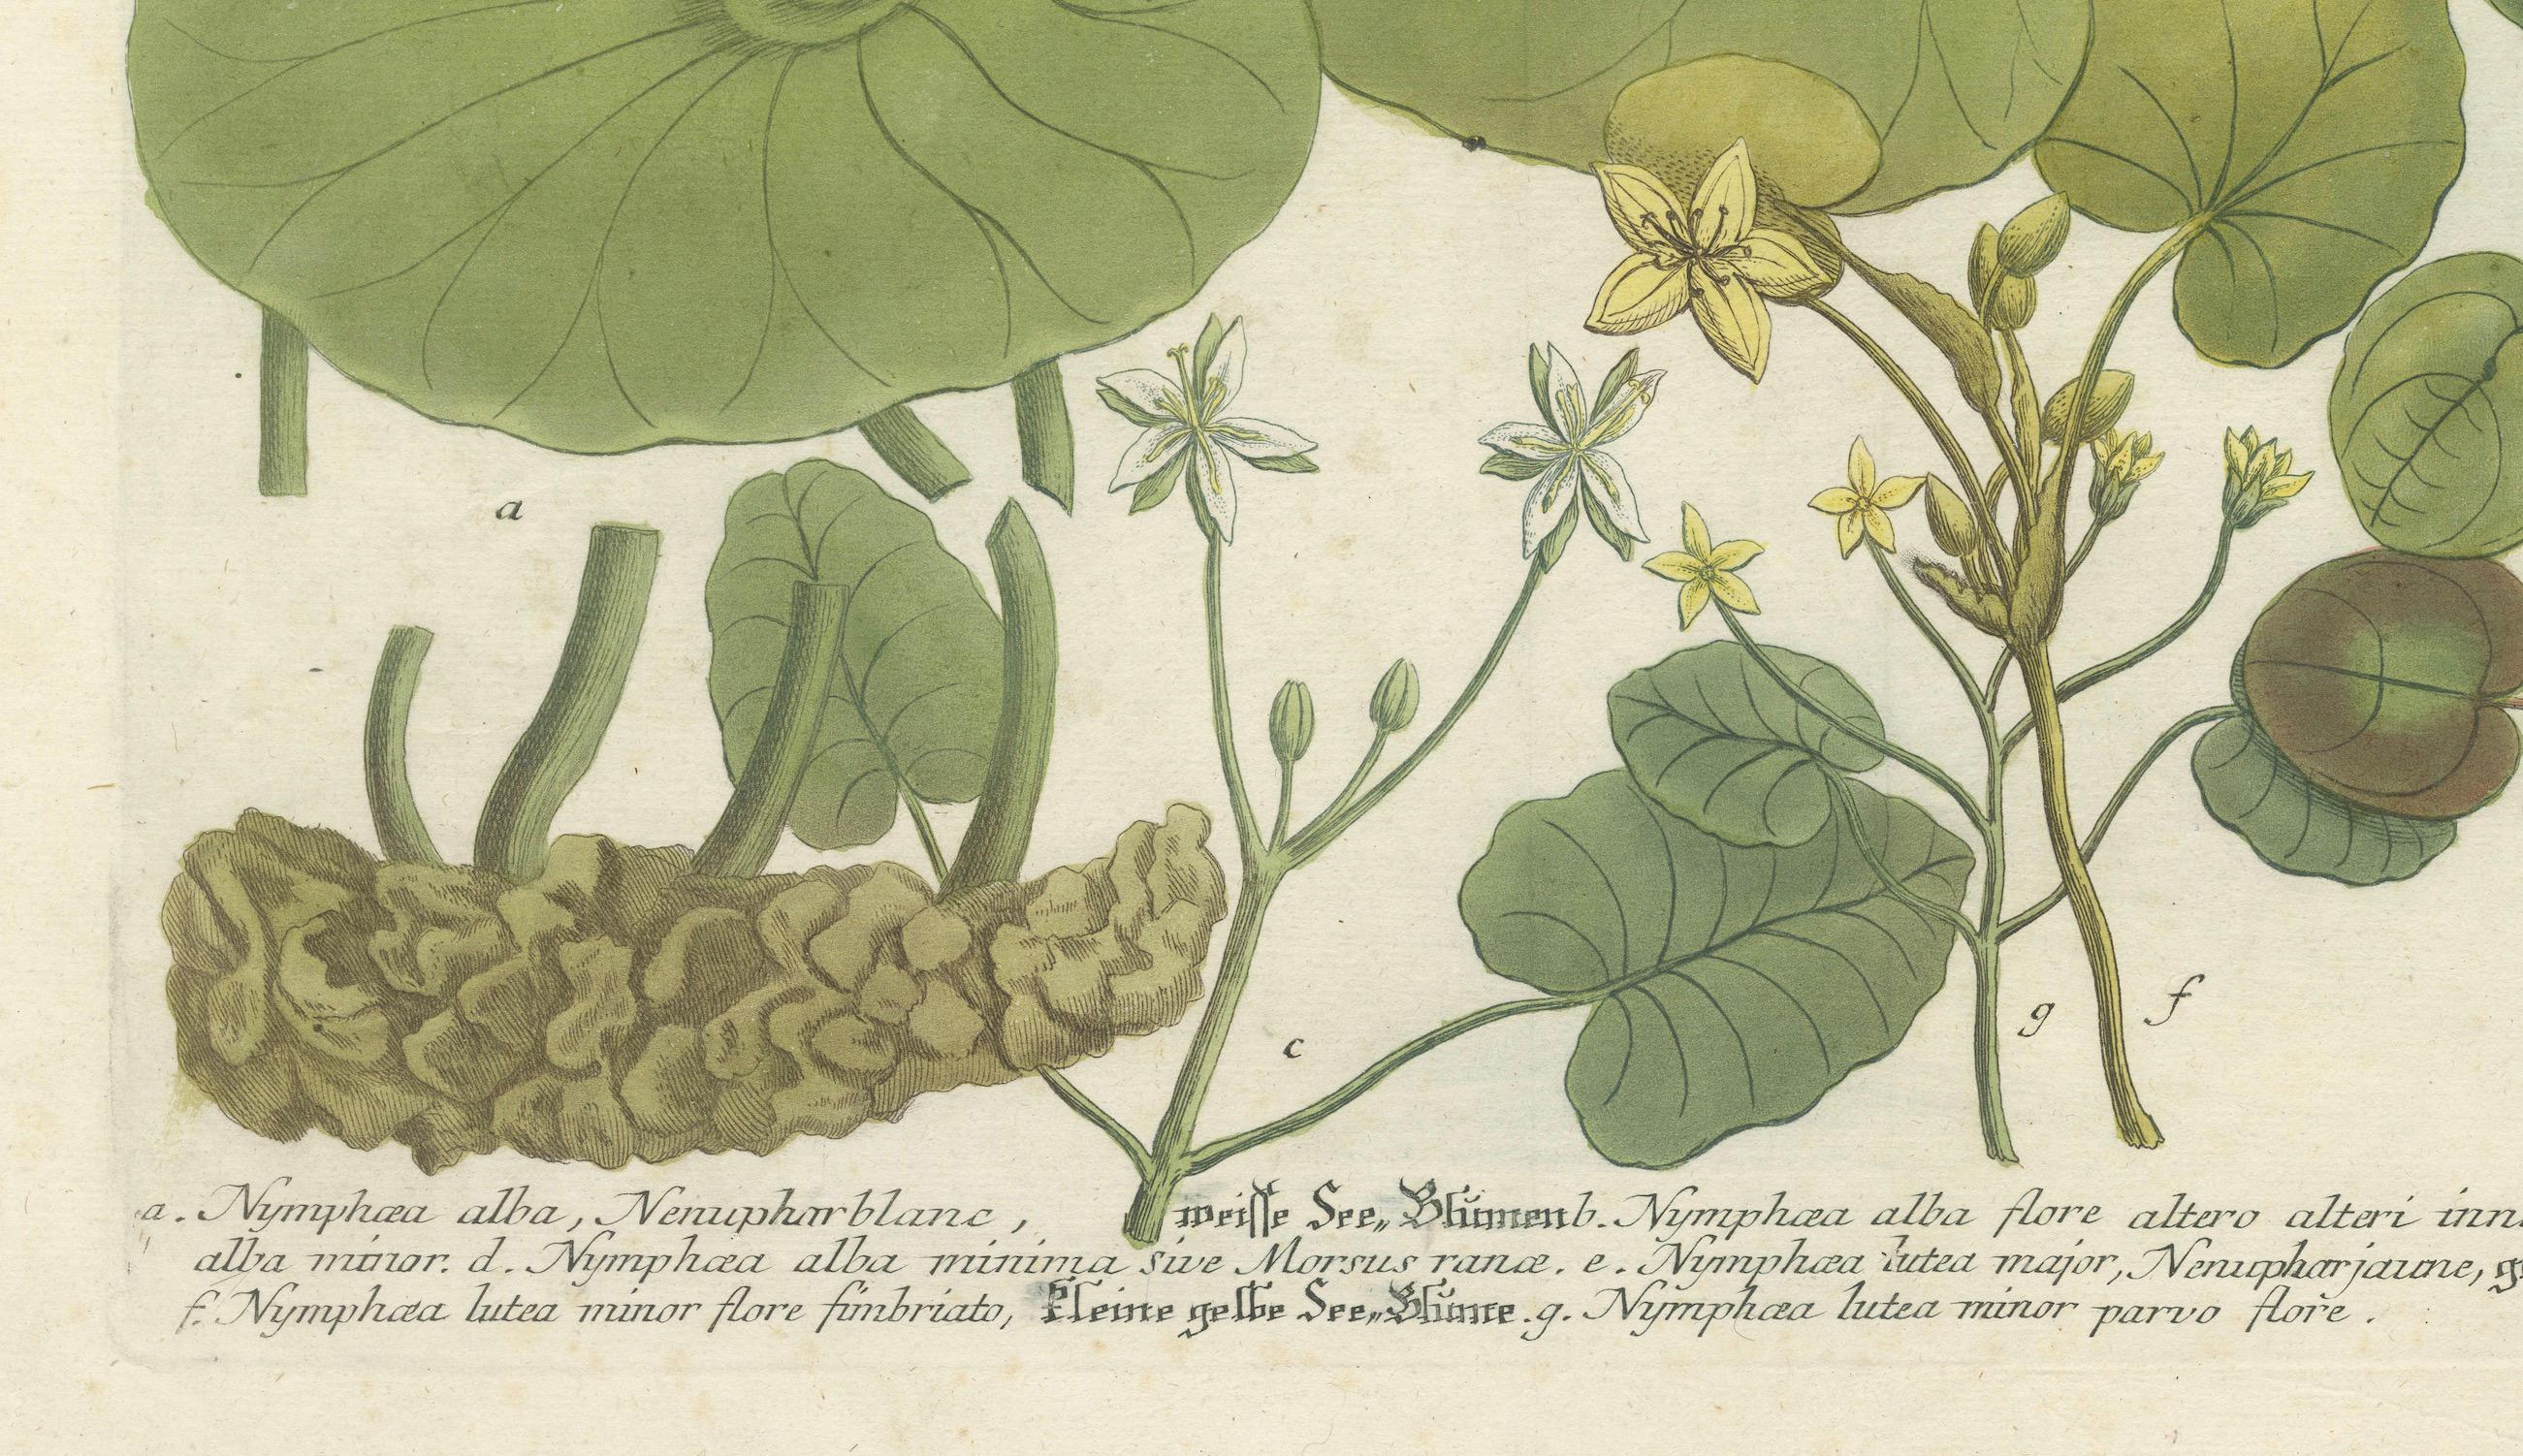 a
c
g
f
a. Nymphæa alba, Nenuphar blanc, weisse See„Blŭmen b. Nymphæa alba flore altero alteri inn
alba minor. d. Nymphæa alba minima sive Morsus ranæ. e. Nymphæa lutea major, Nenuphar jaune,
f. Nymphæa lutea minor flore fimbriato, kleine gelbe See„Blŭme. g. Nymphæa lutea minor parvo flore.